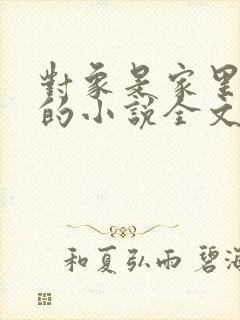 對象是家里
的小說全文
和夏弘雨 碧海